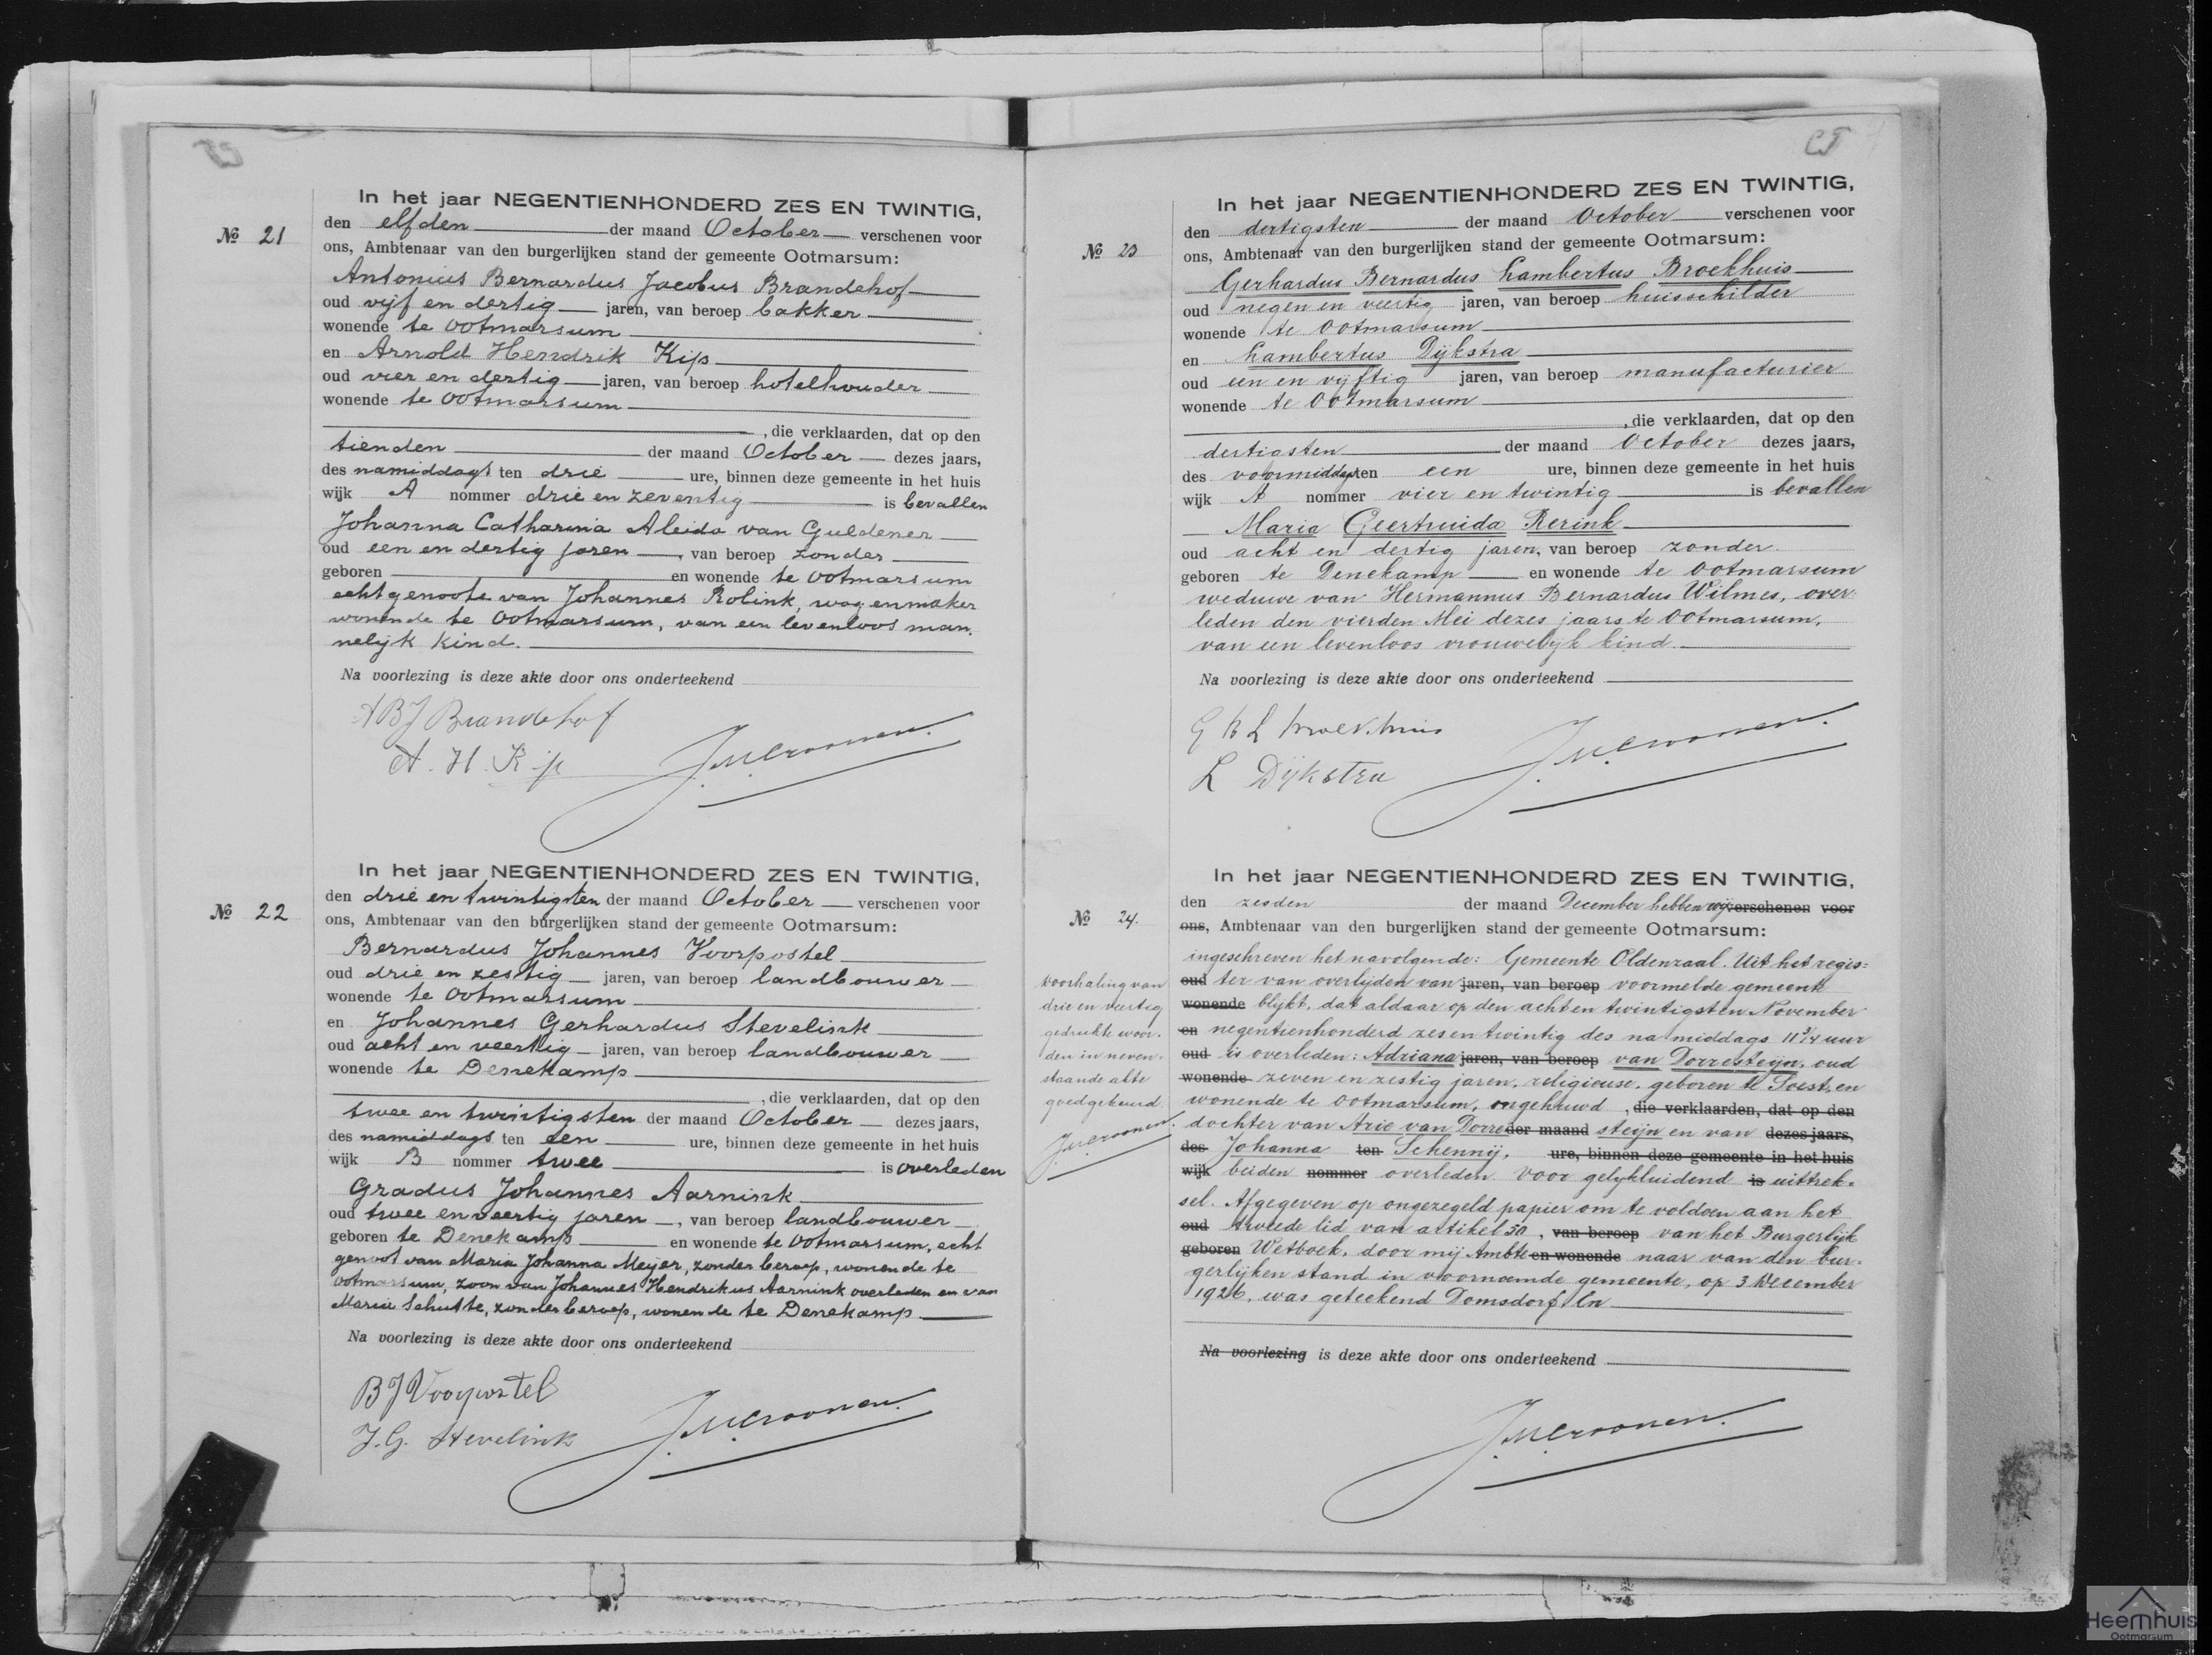 CT
In het jaar NEGENTIENHONDERD ZES EN TWINTIG,
№ 21
den elfden der maand October verschenen voor
ons, Ambtenaar van den burgerlijken stand der gemeente Ootmarsum:
Antonius Bernardus Jacobus Brandehof
oud vijf en dertig jaren, van beroep bakker
wonende te Ootmarsum
en Arnold Hendrik Kip
oud vier en dertig jaren, van beroep hotelhouder
wonende te Ootmarsum
, die verklaarden, dat op den
tienden der maand October dezes jaars,
des namiddags ten drie ure, binnen deze gemeente in het huis
wijk A nommer drie en zeventig is bevallen
Johanna Catharina Aleida van Guldener
oud een en dertig jaren, van beroep zonder
geboren en wonende te Ootmarsum
echtgenoote van Johannes Rolink, wagenmaker
wonende te Ootmarsum, van een levenloos man-
nelijk kind.
Na voorlezing is deze akte door ons onderteekend
ABJ Brandehof
A. H. Kip
J.M.Croonen.
In het jaar NEGENTIENHONDERD ZES EN TWINTIG,
№ 22
den drie en twintigsten der maand October verschenen voor
ons, Ambtenaar van den burgerlijken stand der gemeente Ootmarsum:
Bernardus Johannes Voorpostel
oud drie en zestig jaren, van beroep landbouwer
wonende te Ootmarsum
en Johannes Gerhardus Stevelink
oud acht en veertig jaren, van beroep landbouwer
wonende te Denekamp
, die verklaarden, dat op den
twee en twintigsten der maand October dezes jaars,
des namiddags ten een ure, binnen deze gemeente in het huis
wijk B nommer twee is overleden
Gradus Johannes Aarnink
oud twee en veertig jaren, van beroep landbouwer
geboren te Denekamp en wonende te Ootmarsum, echt
genoot van Maria Johanna Meijer, zonder beroep, wonende te
Ootmarsum, zoon van Johannes Hendrikus Aarnink overleden en van
Maria Schutte, zonder beroep, wonende te Denekamp
Na voorlezing is deze akte door ons onderteekend
BJ Voorpostel
J.G. Stevelink
J.M.Croonen.
CT
In het jaar NEGENTIENHONDERD ZES EN TWINTIG,
№ 23
den dertigsten der maand October verschenen voor
ons, Ambtenaar van den burgerlijken stand der gemeente Ootmarsum:
Gerhardus Bernardus Lambertus Broekhuis
oud negen en veertig jaren, van beroep huisschilder
wonende te Ootmarsum
en Lambertus Dijkstra
oud een en vijftig jaren, van beroep manufacturier
wonende te Ootmarsum
, die verklaarden, dat op den
dertigsten der maand October dezes jaars,
des voormiddags ten een ure, binnen deze gemeente in het huis
wijk A nommer vier en twintig is bevallen
Maria Geertruida Rerink
oud acht en dertig jaren, van beroep zonder
geboren te Denekamp en wonende te Ootmarsum
weduwe van Hermannus Bernardus Wilmes, over-
leden den vierden Mei dezes jaars te Ootmarsum,
van een levenloos vrouwelijk kind.
Na voorlezing is deze akte door ons onderteekend
G B L Broekhuis
L Dijkstra
J.M.Croonen.
In het jaar NEGENTIENHONDERD ZES EN TWINTIG,
№ 24.
den zesden der maand December hebben wij verschenen voor
ons, Ambtenaar van den burgerlijken stand der gemeente Ootmarsum:
ingeschreven het navolgende: Gemeente Oldenzaal. Uit het regis=
oud ter van overlijden van jaren, van beroep voormelde gemeente
wonende blijkt, dat aldaar op den achten twintigsten November
en negentienhonderd zes en twintig des namiddags 11 3/4 uur
oud is overleden: Adriana jaren, van beroep van Dorresteijn, oud
wonende zeven en zestig jaren, religieuse, geboren te Soest, en
wonende te Ootmarsum, ongehuwd, die verklaarden, dat op den
dochter van Arie van Dorre der maand steijn en van dezes jaars,
des Johanna ten Schennij, ure, binnen deze gemeente in het huis
wijk beiden nommer overleden. Voor gelijkluidend is uittrek=
sel. Afgegeven op ongezegeld papier om te voldoen aan het
oud tweede lid van artikel 50, van beroep van het Burgerlijk
geboren Wetboek, door mij Ambte en wonende naar van den bur-
gerlijken stand in voornoemde gemeente, op 3 December
1926, was geteekend Domsdorf ln
Na voorlezing is deze akte door ons onderteekend
J.M.Croonen.
Doorhaling van
drie en veertig
gedrukte woor-
den in neven-
staande akte
goedgekeurd.
J.M.Croonen.
Heemhuis
Ootmarsum